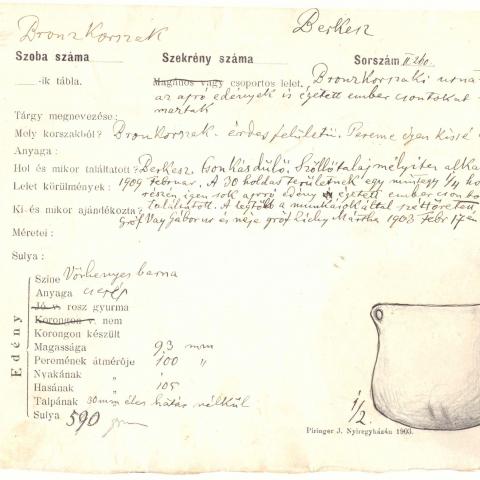 Bronzkorszak Berkesz
Szoba száma Szekrény száma Sorszám II. 260.
-ik tábla. Magános vagy csoportos lelet. Bronzkorszaki urna
az apró edények is égetett ember csontokat
Tárgy megnevezése: maztak
Mely korszakból? Bronzkorszak. érdes felületü. Pereme igen kissé
Anyaga:
Hol és mikor találtatott? Berkesz, Csonkásdülő. Szőllőtalaj mélyítés alka
Lelet körülmények: 1909 Februar. A 30 holdas területnek egy mintegy 1/4 ho
részén igen sok apró edény és égetett ember
Ki és mikor ajándékozta? találtatott. A legtöbb a munkások által széttöretett
Gróf Vay Gáborné és néje gróf Zichy Mártha 1903 Febr 17 én
Méretei:
Sulya:
Edény
Szine Vörhenyes barna
Anyaga cserép
Jó v. rosz gyurma
Korongon v. nem
Korongon készült
Magassága 93 mm
Peremének átmérője 100 "
Nyakának "
Hasának " 105
Talpának 30 mm éles határ nélkül
Sulya 590 gm
1/2.
Piringer J. Nyiregyházán 1903.